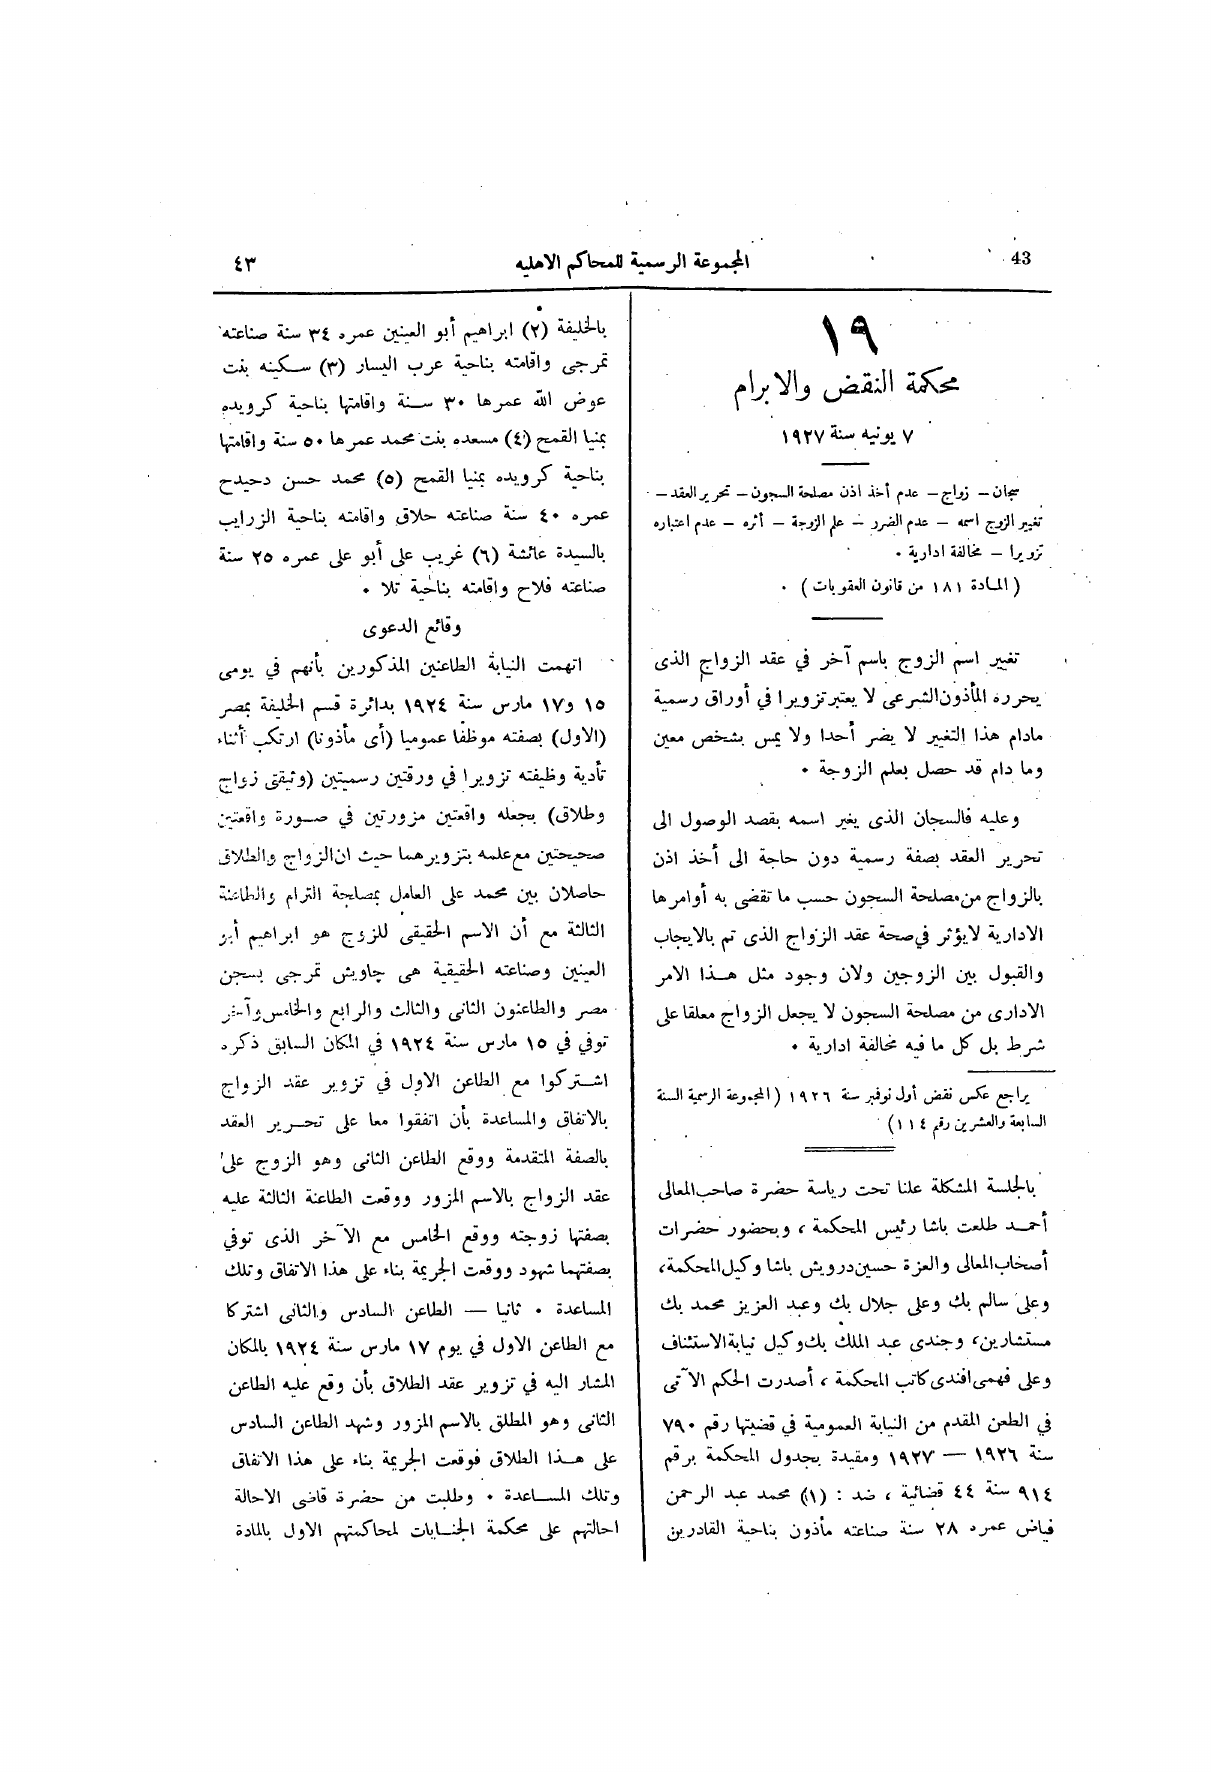 43
المجموعة الرسمية للمحاكم الاهليه
٤٣
١٩
محكمة النقض والابرام
٧ يونيه سنة ١٩٢٧
سجان – زواج – عدم أخذ اذن مصلحة السجون – تحرير العقد –
تغيير الزوج اسمه – عدم الضرر – علم الزوجة – أثره – عدم اعتباره
تزويرا – مخالفة ادارية .
( المادة ١٨١ من قانون العقوبات ) .
تغيير اسم الزوج باسم آخر في عقد الزواج الذى
يحرره المأذون الشرعى لا يعتبر تزويرا في أوراق رسمية
مادام هذا التغيير لا يضر أحدا ولا يمس بشخص معين
وما دام قد حصل بعلم الزوجة .
وعليه فالسجان الذى يغير اسمه بقصد الوصول الى
تحرير العقد بصفة رسمية دون حاجة الى أخذ اذن
بالزواج من مصلحة السجون حسب ما تقضى به أوامرها
الادارية لا يؤثر في صحة عقد الزواج الذى تم بالايجاب
والقبول بين الزوجين ولان وجود مثل هـذا الامر
الادارى من مصلحة السجون لا يجعل الزواج معلقا على
شرط بل كل ما فيه مخالفة ادارية .
يراجع عكس نقض أول نوفمبر سنة ١٩٢٦ ( المجموعة الرسمية السنة
السابعة والعشرين رقم ١١٤ )
بالجلسة المشكلة علنا تحت رياسة حضرة صاحب المعالى
أحمـد طلعت باشا رئيس المحكمة ، وبحضور حضرات
أصحاب المعالى والعزة حسين درويش باشا وكيل المحكمة،
وعلى سالم بك وعلى جلال بك وعبد العزيز محمد بك
مستشارين، وجندى عبد الملك بك وكيل نيابة الاستئناف
وعلى فهمى افندى كاتب المحكمة ، أصدرت الحكم الآتى
في الطعن المقدم من النيابة العمومية في قضيتها رقم ٧٩٠
سنة ١٩٢٦ — ١٩٢٧ ومقيدة بجدول المحكمة برقم
٩١٤ سنة ٤٤ قضائية ، ضد : (١) محمد عبد الرحمن
فياض عمره ٢٨ سنة صناعته مأذون بناحية القادرين
بالخليفة (٢) ابراهيم أبو العينين عمره ٣٤ سنة صناعته
تمرجى واقامته بناحية عرب اليسار (٣) سـكينه بنت
عوض الله عمرها ٣٠ سـنة واقامتها بناحية كرويده
بمنيا القمح (٤) مسعده بنت محمد عمرها ٥٠ سنة واقامتها
بناحية كرويده بمنيا القمح (٥) محمد حسن دحيدح
عمره ٤٠ سنة صناعته حلاق واقامته بناحية الزرايب
بالسيدة عائشة (٦) غريب على أبو على عمره ٢٥ سنة
صناعته فلاح واقامته بناحية تلا .
وقائع الدعوى
اتهمت النيابة الطاعنين المذكورين بأنهم في يومى
١٥ و١٧ مارس سنة ١٩٢٤ بدائرة قسم الخليفة بمصر
(الاول) بصفته موظفا عموميا (أى مأذونا) ارتكب أثناء
تأدية وظيفته تزويرا في ورقتين رسميتين (وثيقتى زواج
وطلاق) بجعله واقعتين مزورتين في صـورة واقعتين
صحيحتين مع علمه بتزويرهما حيث ان الزواج والطلاق
حاصلان بين محمد على العامل بمصلحة الترام والطاعنة
الثالثة مع أن الاسم الحقيقى للزوج هو ابراهيم أبو
العينين وصناعته الحقيقية هى چاويش تمرجى بسجن
مصر والطاعنون الثانى والثالث والرابع والخامس وآخر
توفي في ١٥ مارس سنة ١٩٢٤ في المكان السابق ذكره
اشـتركوا مع الطاعن الاول في تزوير عقد الزواج
بالاتفاق والمساعدة بأن اتفقوا معا على تحـرير العقد
بالصفة المتقدمة ووقع الطاعن الثانى وهو الزوج على
عقد الزواج بالاسم المزور ووقعت الطاعنة الثالثة عليه
بصفتها زوجته ووقع الخامس مع الآخر الذى توفي
بصفتهما شهود ووقعت الجريمة بناء على هذا الاتفاق وتلك
المساعدة . ثانيا — الطاعن السادس والثانى اشتركا
مع الطاعن الاول في يوم ١٧ مارس سنة ١٩٢٤ بالمكان
المشار اليه في تزوير عقد الطلاق بأن وقع عليه الطاعن
الثانى وهو المطلق بالاسم المزور وشهد الطاعن السادس
على هـذا الطلاق فوقعت الجريمة بناء على هذا الاتفاق
وتلك المسـاعدة . وطلبت من حضرة قاضى الاحالة
احالتهم على محكمة الجنـايات لمحاكمتهم الاول بالمادة